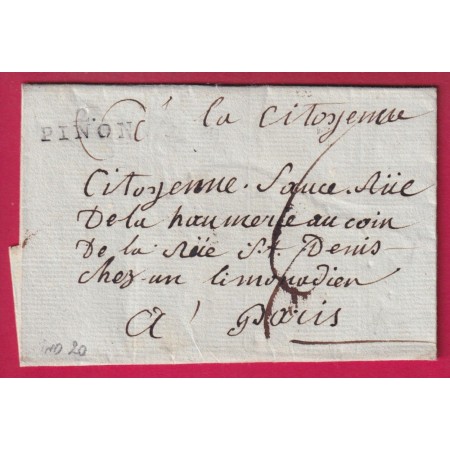 à la Citoyenne
PINON
Citoyenne Sauce Rüe
De la haumerie au coin
De la Rüe St Denis
chez un limonadien
A Paris
IND 20